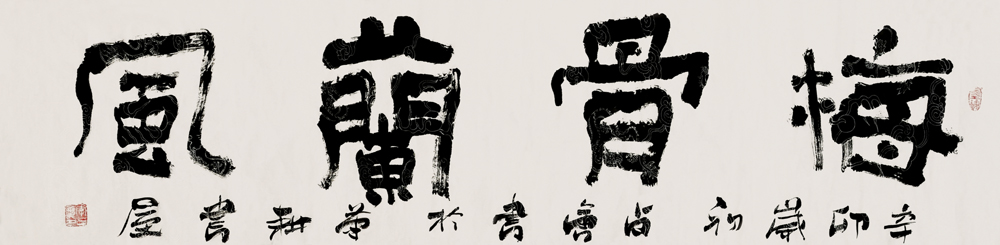 梅骨蘭風
辛卯歲初尚會書於耕書屋